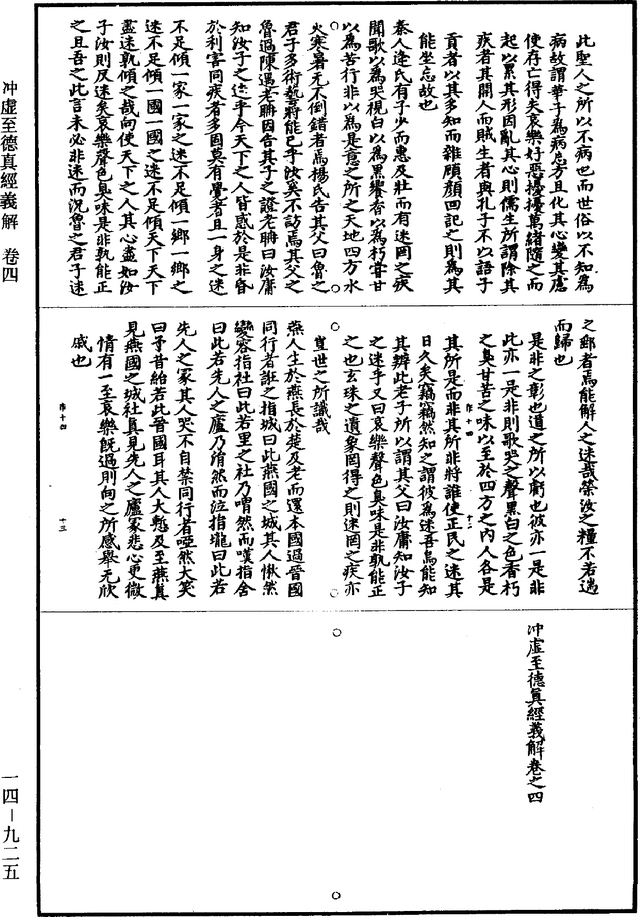 冲虛至德真經義解　卷四
一四－九二五
此聖人之所以不病也而世俗以不知為
病故謂華子為病忘方且化其心變其慮
使存亡得失哀樂好惡擾擾萬緒隨之而
起以累其形因亂其心則儒生所謂除其
疾者其開人而賊生者與孔子不以語子
貢者以其多知而雜顧顏回記之則為其
能坐忘故也
秦人逢氏有子少而惠及壯而有迷罔之疾
聞歌以為哭視白以為黑饗香以為朽甞甘
以為苦行非以為是意之所之天地四方水
火寒暑无不倒錯者焉楊氏告其父曰魯之
君子多術藝將能已乎汝奚不訪焉其父之
魯過陳遇老聃因告其子之證老聃曰汝庸
知汝子之迷乎今天下之人皆惑於是非昏
於利害同疾者多固莫有覺者且一身之迷
不足傾一家一家之迷不足傾一鄉一鄉之
迷不足傾一國一國之迷不足傾天下天下
盡迷孰傾之哉向使天下之人其心盡如汝
子汝則反迷矣哀樂聲色臭味是非孰能正
之且吾之此言未必非迷而況魯之君子迷
之郵者焉能解人之迷哉榮汝之糧不若遄
而歸也
是非之彰也道之所以虧也彼亦一是非
此亦一是非則歌哭之聲黑白之色香朽
之臭甘苦之味以至於四方之內人各是
其所是而非其所非將誰使正民之迷其
日久矣竊竊然知之謂彼為迷吾焉能知
其辨此老子所以謂其父曰汝庸知汝子
之迷乎又曰哀樂聲色臭味是非孰能正
之也玄珠之遺象罔得之則迷罔之疾亦
豈世之所識哉
燕人生於燕長於楚及老而還本國過晉國
同行者誑之指城曰此燕國之城其人愀然
變容指社曰此若里之社乃喟然而嘆指舍
曰此若先人之廬乃涓然而泣指壠曰此若
先人之冢其人哭不自禁同行者啞然大笑
曰予昔紿若此晉國耳其人大慙及至燕真
見燕國之城社真見先人之廬冢悲心更微
情有一至哀樂既過則向之所感舉无欣
戚也
冲虛至德真經義解卷之四